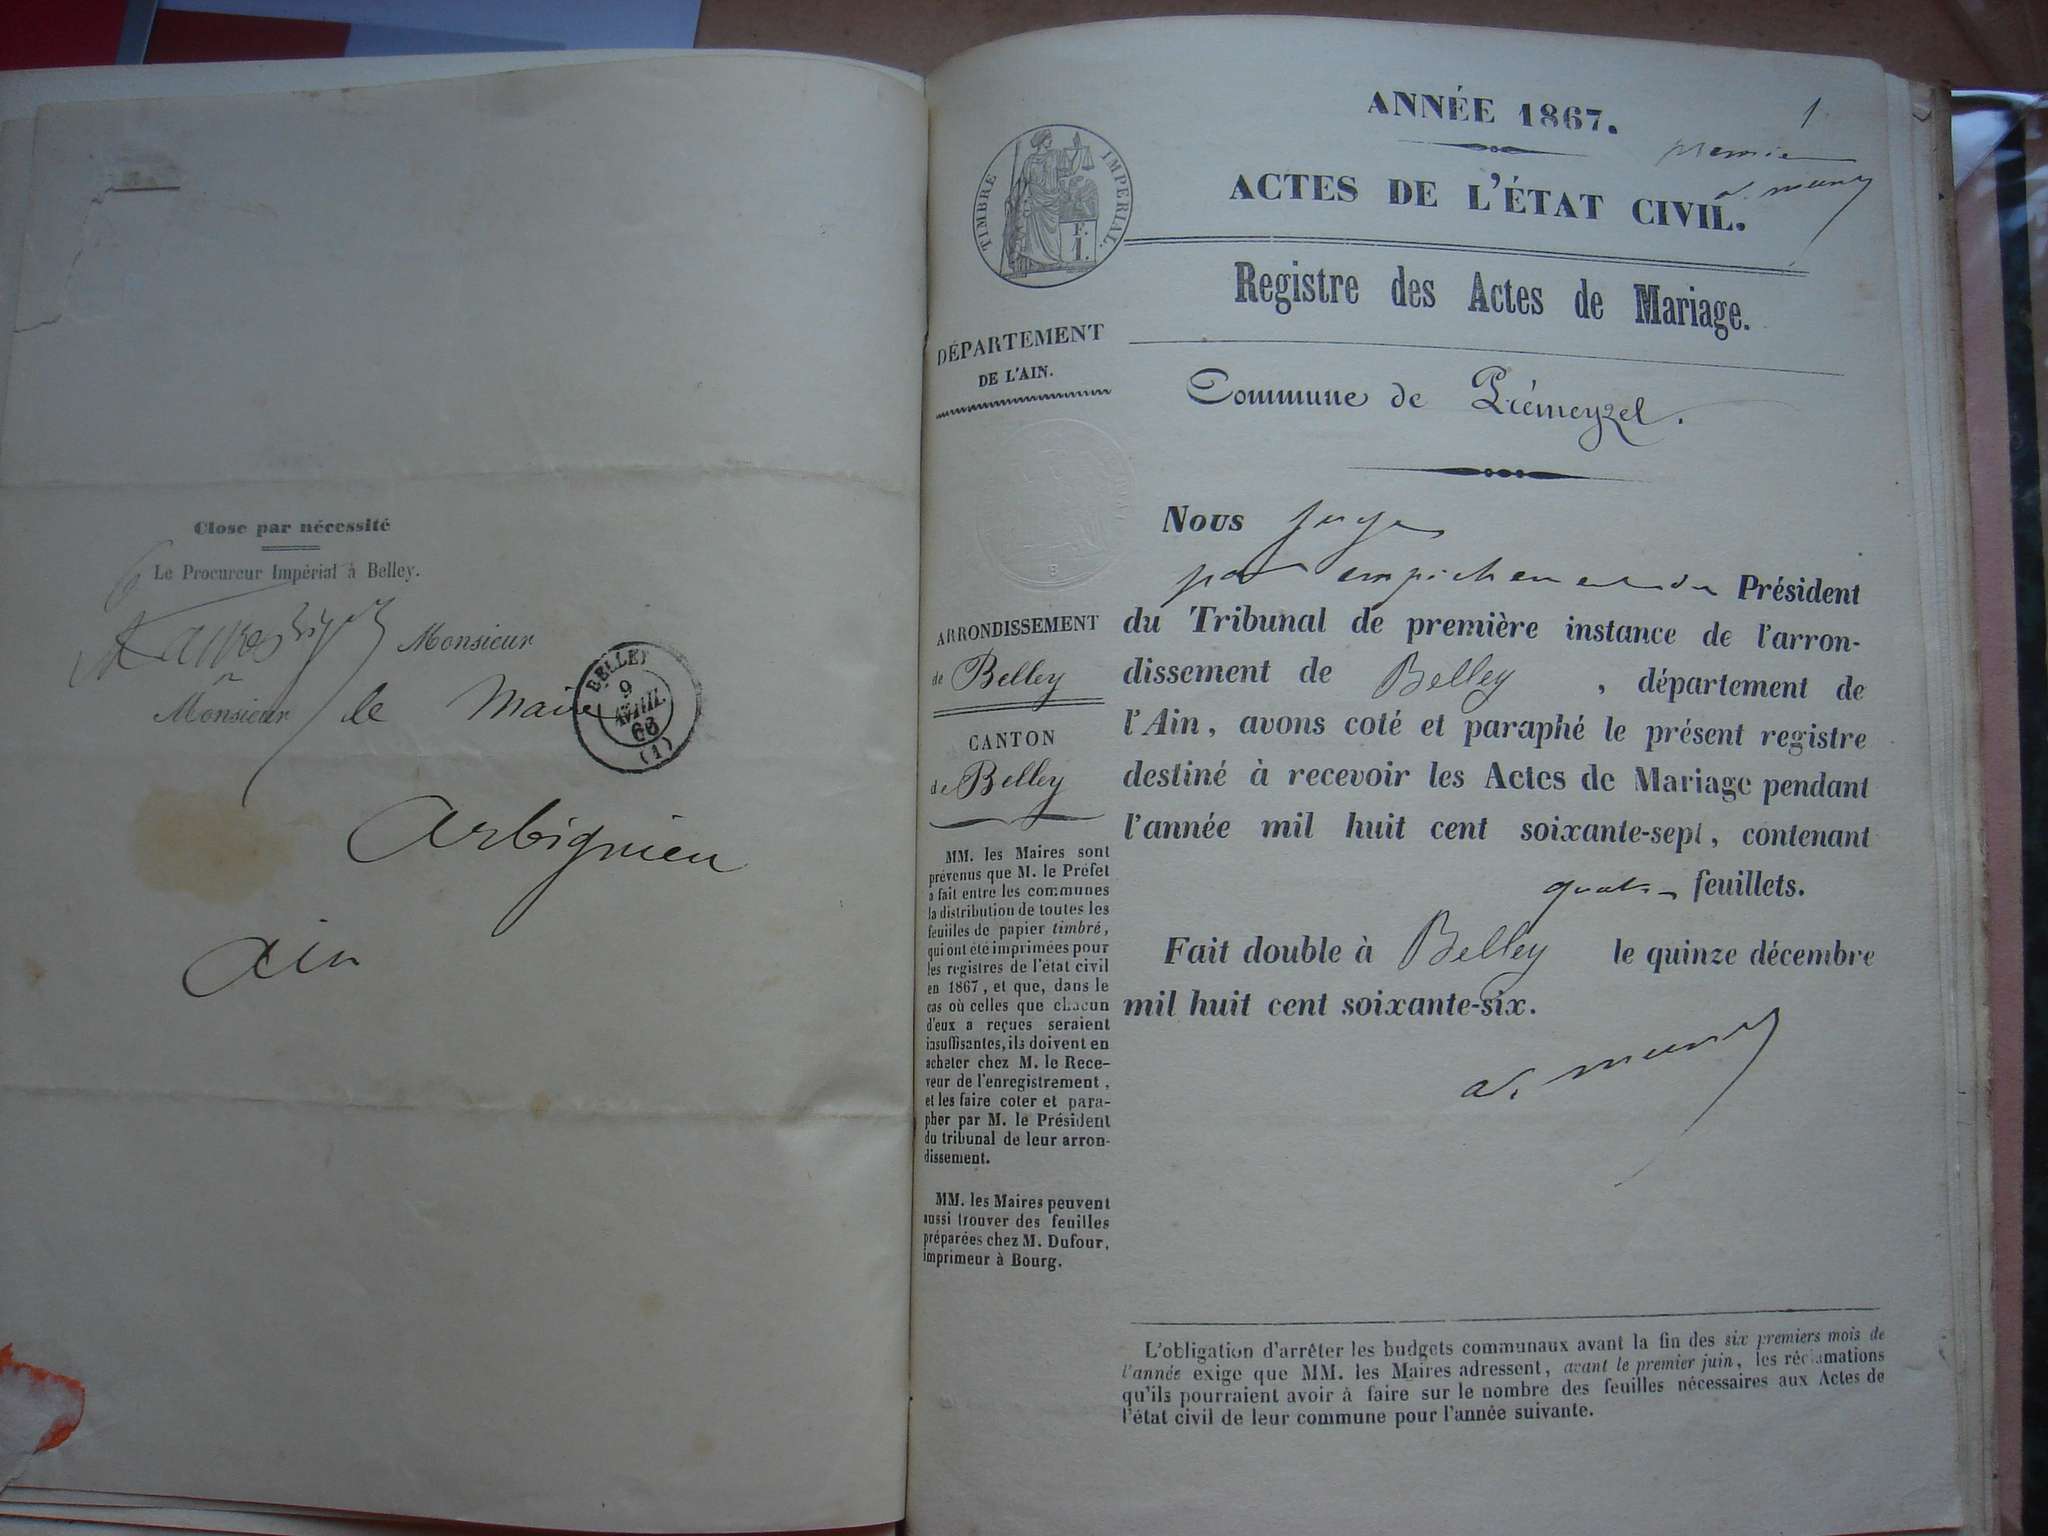 Close par nécessité
Le Procureur Impérial à Belley.
Monsieur
Monsieur le Maire
BELLEY
9
AVRIL
66
(1)
Arbignieu
Ain
ANNÉE 1867.
1
premier
ACTES DE L'ÉTAT CIVIL.
TIMBRE IMPÉRIAL.
F.
1.
Registre des Actes de Mariage.
DÉPARTEMENT
DE L'AIN.
Commune de Prémeyzel.
Nous juge
par empêchement du Président
du Tribunal de première instance de l'arron-
dissement de Belley, département de
l'Ain, avons coté et paraphé le présent registre
destiné à recevoir les Actes de Mariage pendant
l'année mil huit cent soixante-sept, contenant
quatre feuillets.
Fait double à Belley le quinze décembre
mil huit cent soixante-six.
ARRONDISSEMENT
de Belley
CANTON
de Belley
MM. les Maires sont
prévenus que M. le Préfet
a fait entre les communes
la distribution de toutes les
feuilles de papier timbré,
qui ont été imprimées pour
les registres de l'état civil
en 1867, et que, dans le
cas où celles que chacun
d'eux a reçues seraient
insuffisantes, ils doivent en
acheter chez M. le Rece-
veur de l'enregistrement,
et les faire coter et para-
pher par M. le Président
du tribunal de leur arron-
dissement.
MM. les Maires peuvent
aussi trouver des feuilles
préparées chez M. Dufour,
imprimeur à Bourg.
L'obligation d'arrêter les budgets communaux avant la fin des six premiers mois de
l'année exige que MM. les Maires adressent, avant le premier juin, les réclamations
qu'ils pourraient avoir à faire sur le nombre des feuilles nécessaires aux Actes de
l'état civil de leur commune pour l'année suivante.